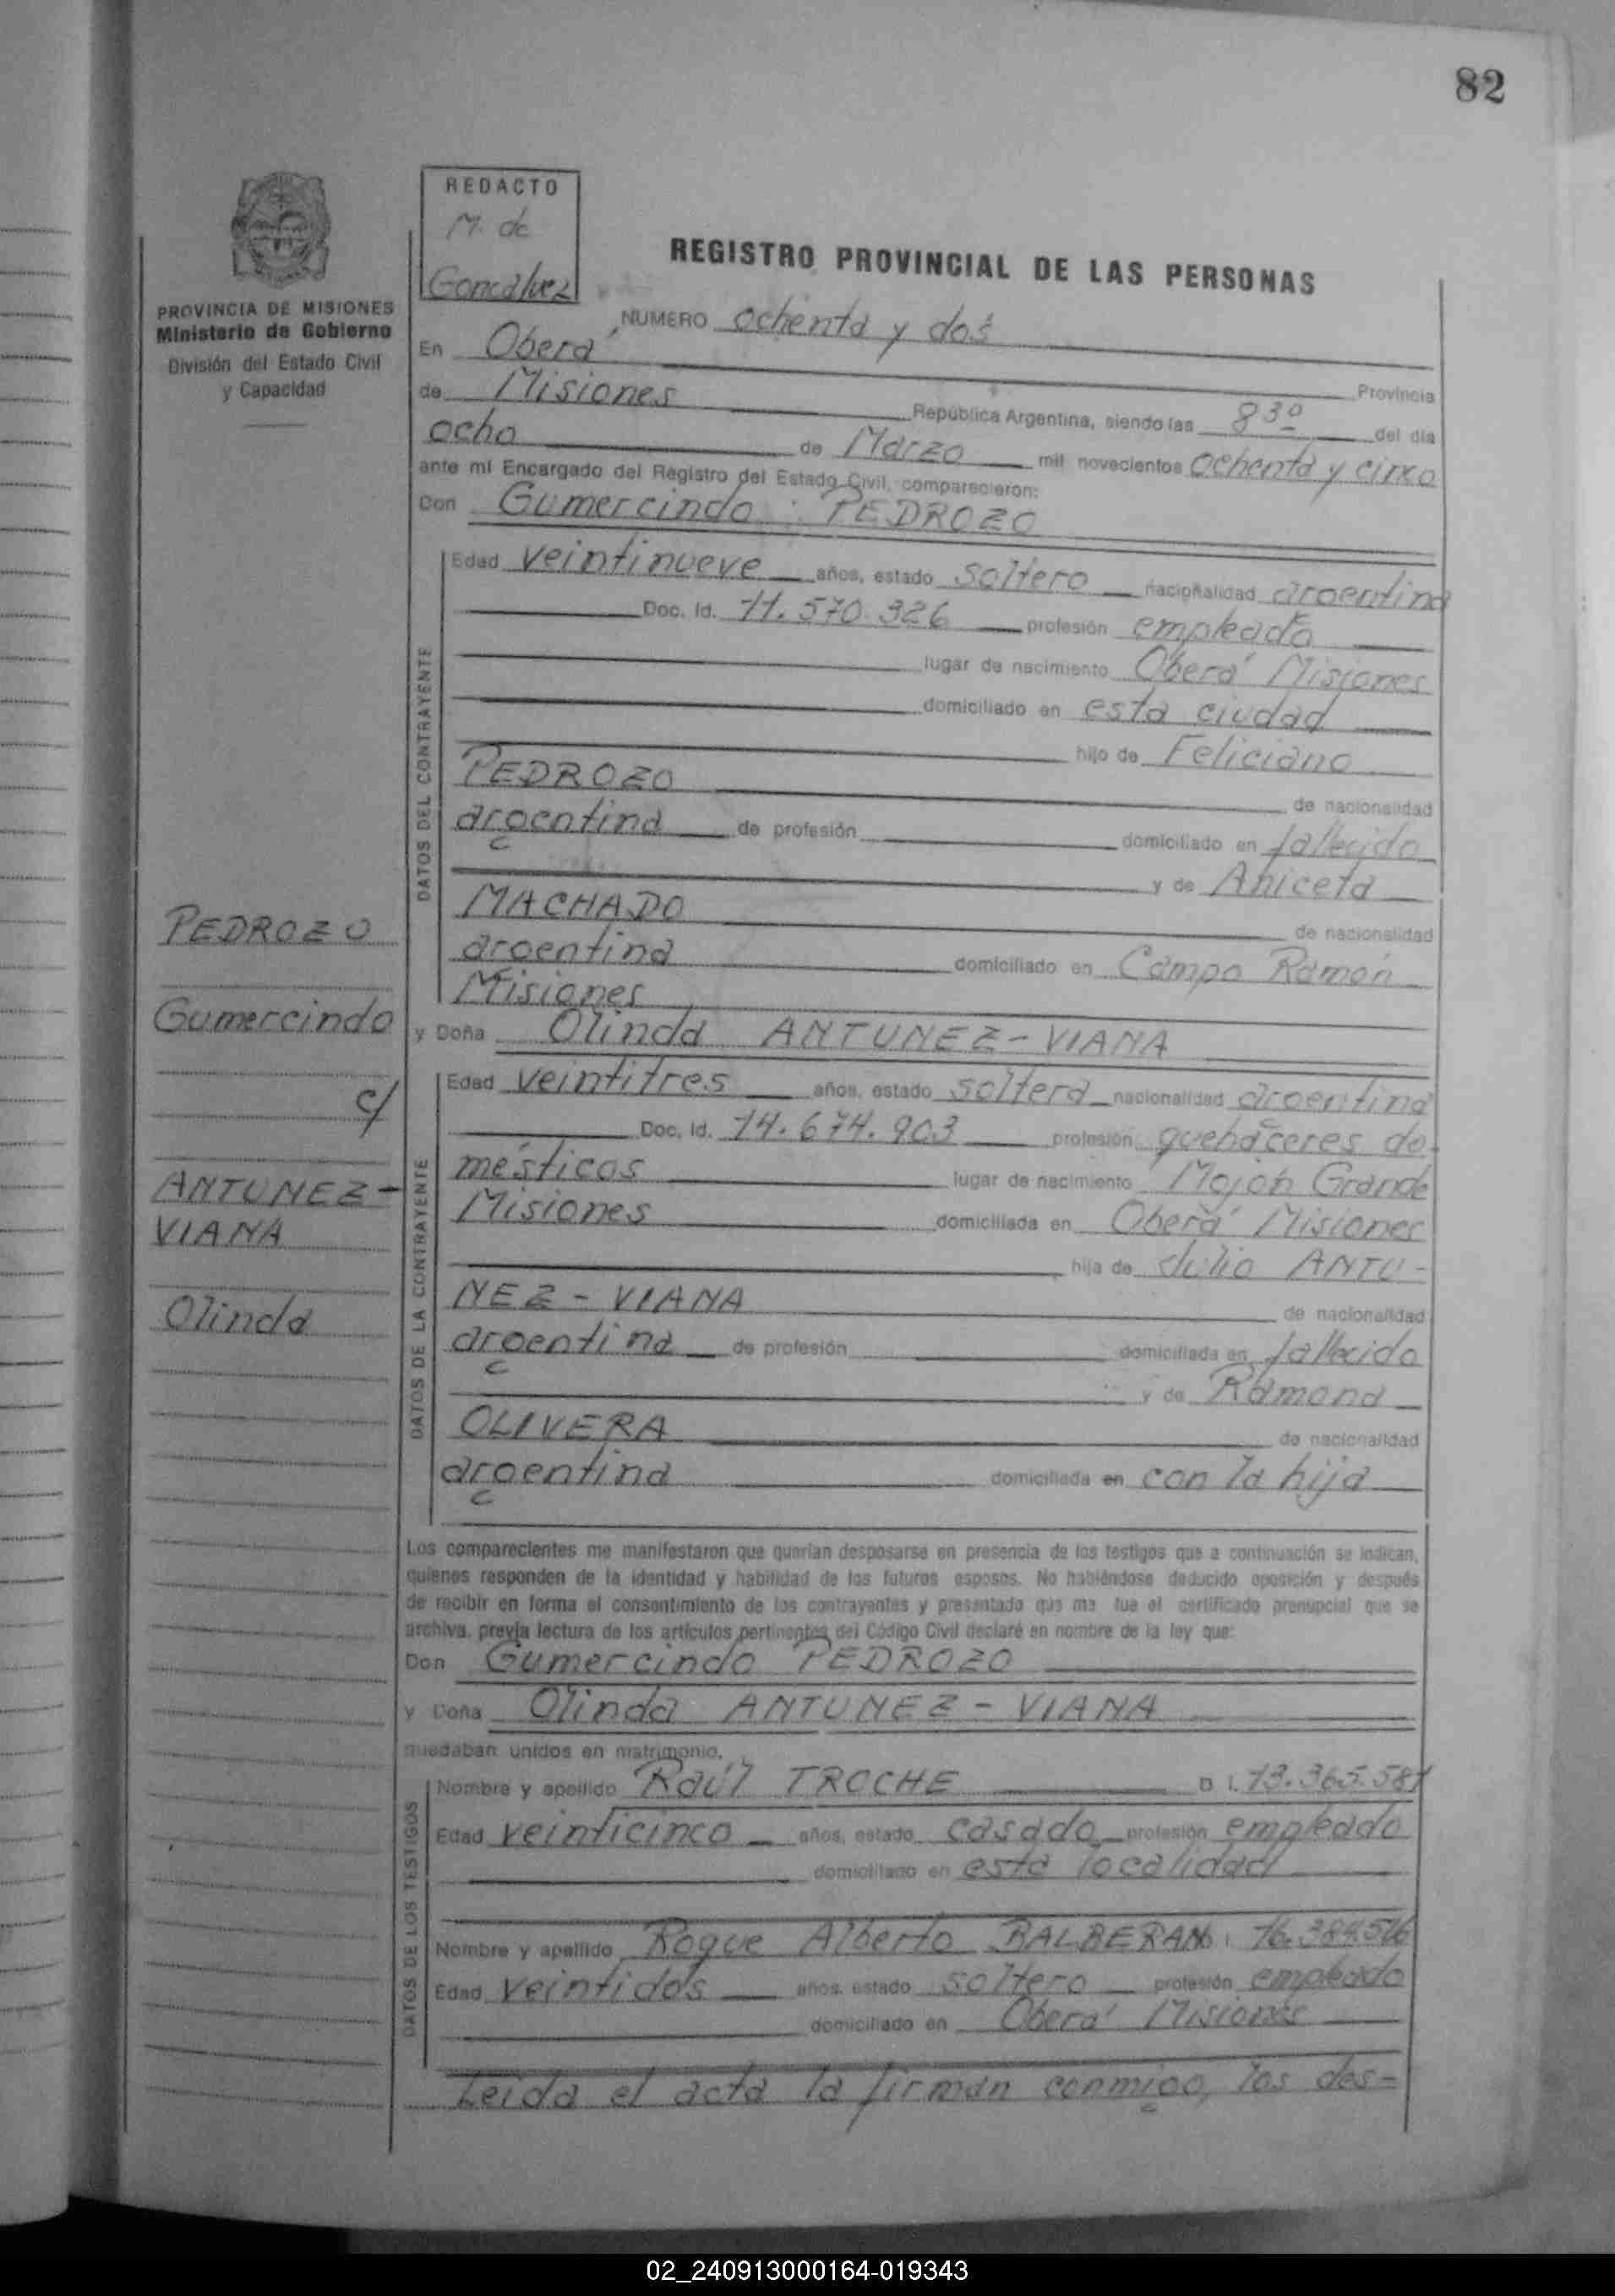 82
REDACTO
M. de
Goncalvez
REGISTRO PROVINCIAL DE LAS PERSONAS
PROVINCIA DE MISIONES
Ministerio de Gobierno
División del Estado Civil
y Capacidad
NUMERO ochenta y dos
En Oberá Provincia
de Misiones República Argentina, siendo las 8 30 del día
ocho de Marzo mil novecientos ochenta y cinco
ante mí Encargado del Registro del Estado Civil, comparecieron:
Don Gumercindo PEDROZO
DATOS DEL CONTRAYENTE
Edad veintinueve años, estado soltero nacionalidad argentina
Doc. Id. 11.570.326 profesión empleado
lugar de nacimiento Oberá Misiones
domiciliado en esta ciudad
hijo de Feliciano
PEDROZO de nacionalidad
argentina de profesión domiciliado en fallecido
y de Aniceta
MACHADO de nacionalidad
argentina domiciliado en Campo Ramón
Misiones
PEDROZO
Gumercindo
c/
ANTUNEZ-
VIANA
Olinda
y Doña Olinda ANTUNEZ - VIANA
DATOS DE LA CONTRAYENTE
Edad veintitres años, estado soltera nacionalidad argentina
Doc. Id. 14.674.903 profesión quehaceres do-
mésticos lugar de nacimiento Mojón Grande
Misiones domiciliada en Oberá Misiones
hija de Julio ANTU-
NEZ - VIANA de nacionalidad
argentina de profesión domiciliada en fallecido
y de Ramona
OLIVERA de nacionalidad
argentina domiciliada en con la hija
Los comparecientes me manifestaron que querían desposarse en presencia de los testigos que a continuación se indican,
quienes responden de la identidad y habilidad de los futuros esposos. No habiéndose deducido oposición y después
de recibir en forma el consentimiento de los contrayentes y presentado que me fue el certificado prenupcial que se
archiva, previa lectura de los artículos pertinentes del Código Civil declaré en nombre de la ley que:
Don Gumercindo PEDROZO
y Doña Olinda ANTUNEZ - VIANA
quedaban unidos en matrimonio.
DATOS DE LOS TESTIGOS
Nombre y apellido Raúl TROCHE D. I. 13.365.581
Edad veinticinco años, estado casado profesión empleado
domiciliado en esta localidad
Nombre y apellido Roque Alberto BALBERAN
Edad veintidos años, estado soltero profesión empleado
domiciliado en Oberá Misiones
Leida el acta la firman conmigo, los des=
02_240913000164-019343